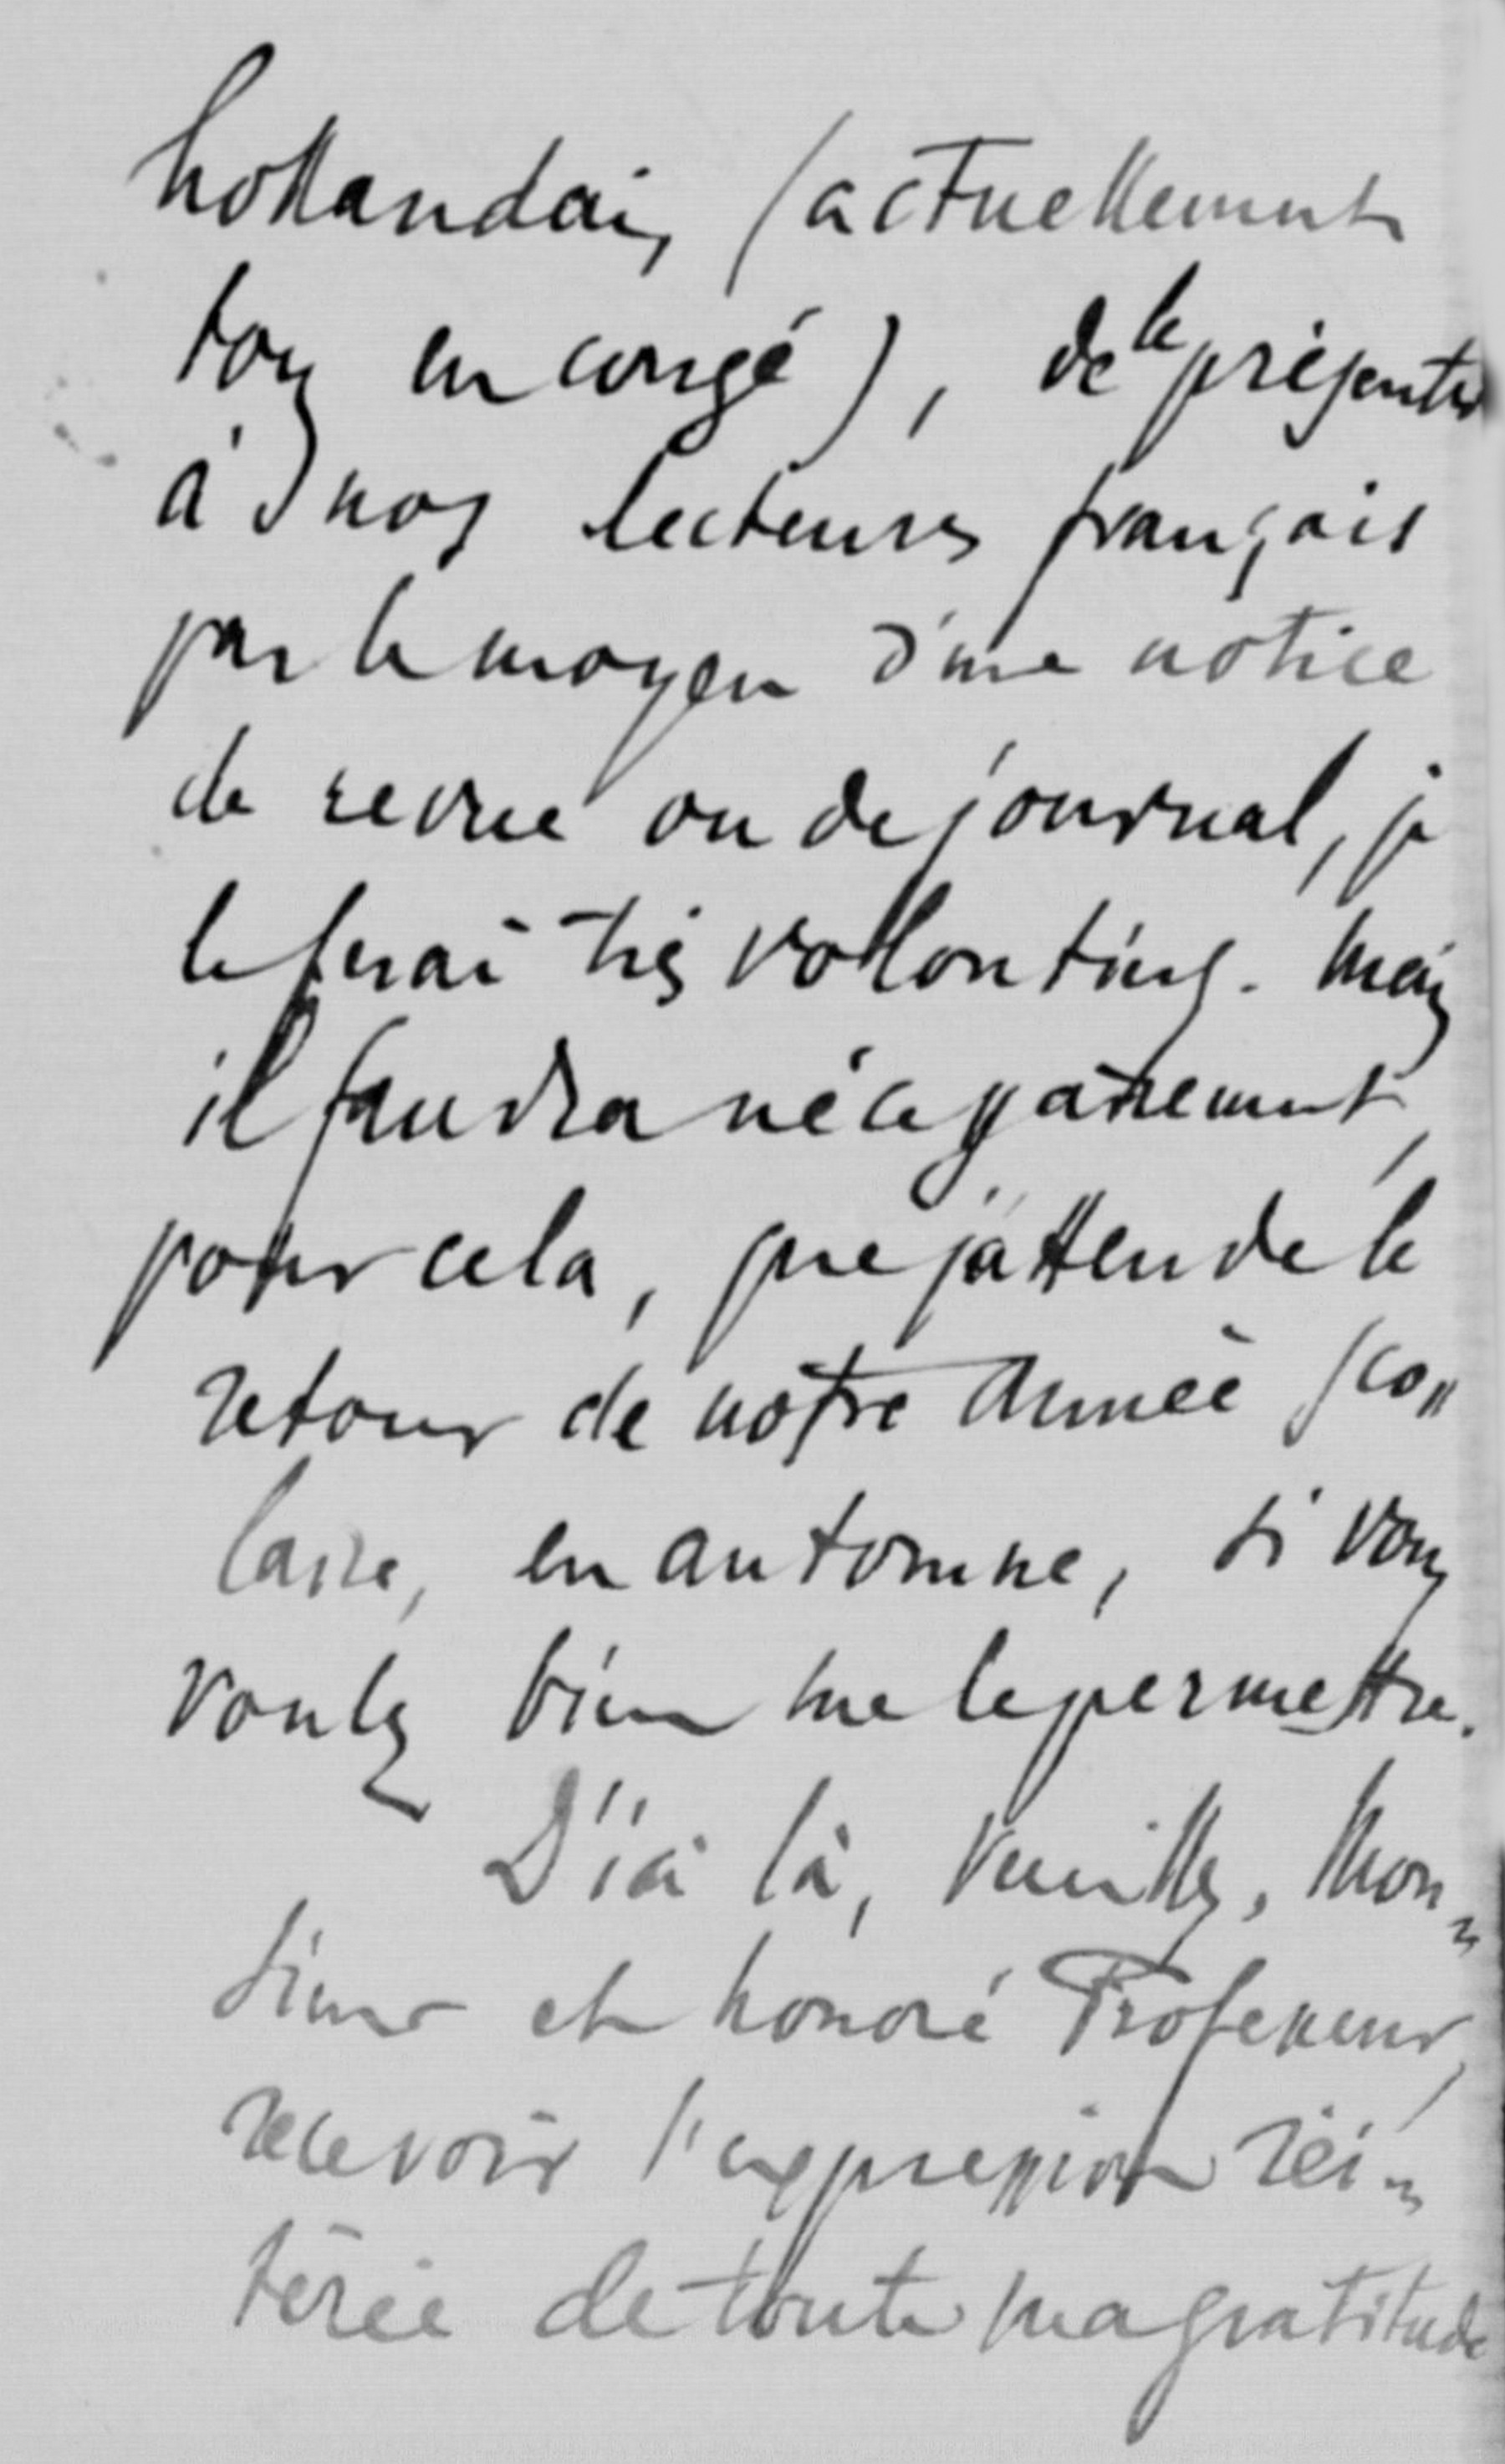 hollandais (actuellement
tous en congé), de le présenter
à nos lecteurs français
par le moyen d'une notice
de revue ou de journal, je
le ferai très vollontiers. Mais
il faudra nécessairement,
pour cela, que j'attende le
retour de notre année sco„
laire, en automne, si vous
voulez bien me le permettre.
D'ici là, veuillez, Mon„
sieur et honoré Professeur,
recevoir l'expression réi„
térée de toute ma gratitude